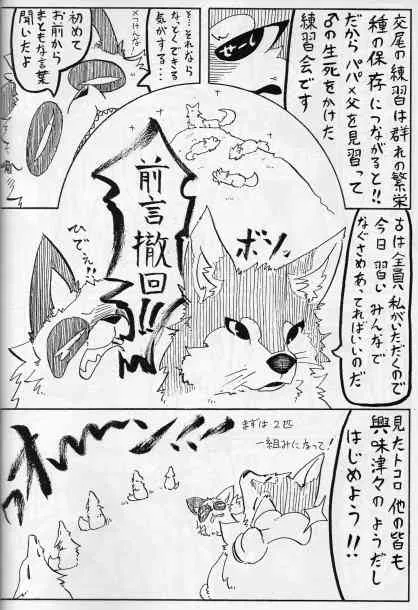 交尾の練習は群れの繁栄
種の保存につながると!!
だから パパ×父を見習って
♂の生死をかけた
練習会です
せーし
そ…それなら
なっとくできる
気がする…
初めて
お前から
まともな言葉
聞いたよ
♀は全員 私がいただくので
今日 習い みんなで
なぐさめあってればいいのだ
ボソッ
前言撤回!!
ひでぇ!!
見たトコロ 他の皆も
興味津々のようだし
はじめよう!!
まずは2匹
一組みになって!
オーーン!!!